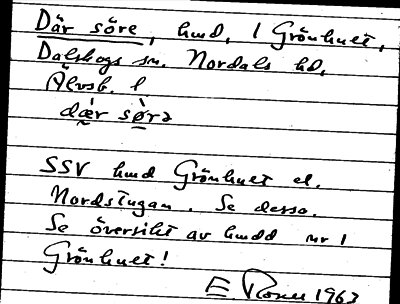 Där söre, hmd, 1 Grönhult,
Dalskogs sn. Nordals hd,
Älvsb. l
dær sørə
SSV hmd Grönhult el.
Nordstugan. Se dessa.
Se översikt av hmdd nr 1
Grönhult!
E 1963